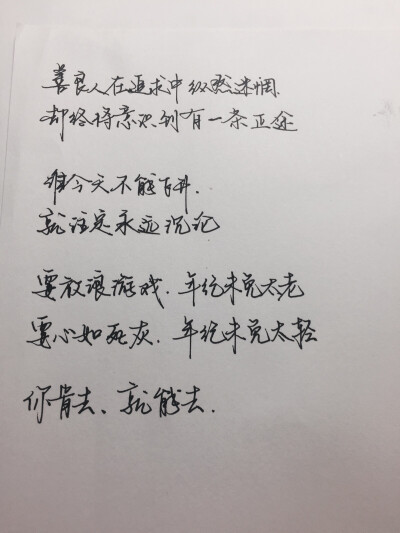 善良人在追求中纵然迷惘,
却终将意识到有一条正途
谁今天不能飞升.
就注定永远沉沦
要放浪游戏.年纪未免太老
要心如死灰.年纪未免太轻
你肯去、就能去.